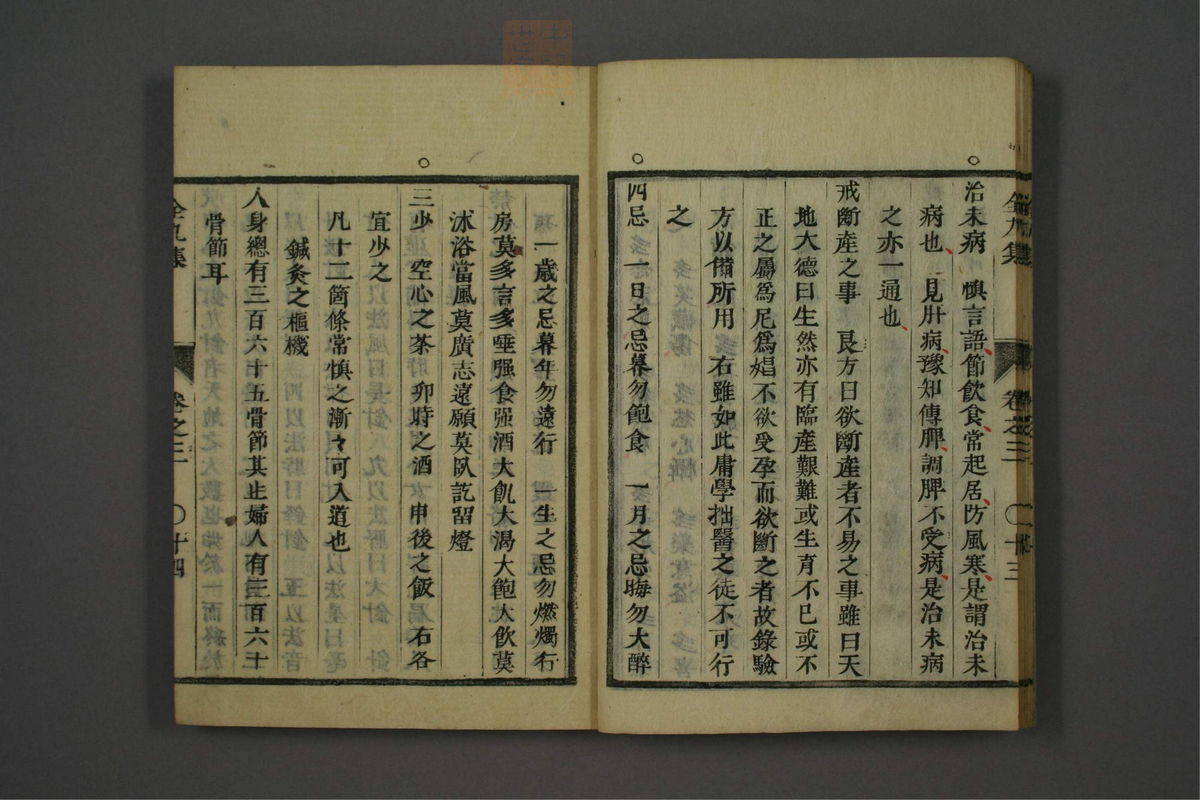 治未病　慎言語節飲食常起居防風寒是謂治未
病也　見肝病豫知傳脾調脾不受病是治未病
之亦一通也
戒斷産之事　良方曰欲斷産者不易之事雖曰天
地大德曰生然亦有臨産艱難或生育不已或不
正之屬爲尼爲娼不欲受孕而欲斷之者故錄驗
方以備所用　右雖如此庸學拙醫之徒不可行
之
四忌　一日之忌暮勿飽食　一月之忌晦勿大醉
全九集　卷之三　〇十三
一歲之忌暮年勿遠行　一生之忌勿燃燭行
房莫多言多唾强食强酒大飢大渴大飽大飲莫
沐浴當風莫廣志遠願莫臥訖留燈
三少　空心之茶　卯時之酒　申後之飯　右各
宜少之
凡十二箇條常慎之漸々可入道也
鍼灸之樞機
人身總有三百六十五骨節其止婦人有三百六十
骨節耳
全九集　卷之三　〇十四